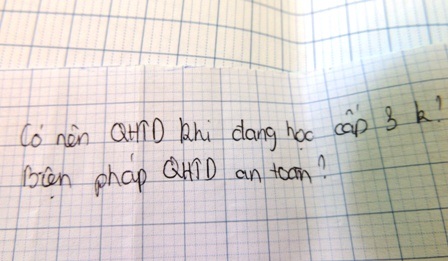 Có nên QHTD khi đang học cấp 3 k?
Biện pháp QHTD an toàn?